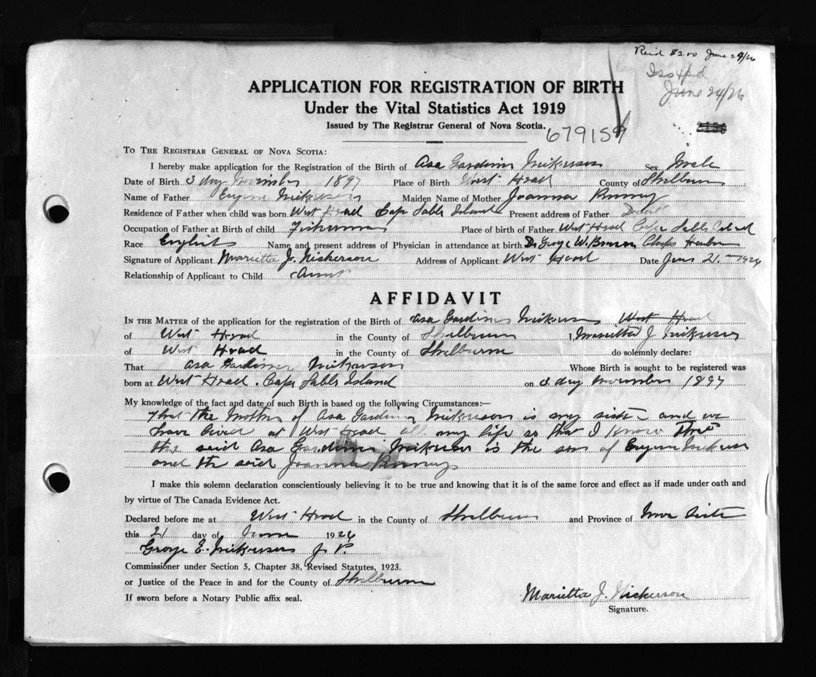 Reid $2.00 June 24/26
Iss
June 24/26
APPLICATION FOR REGISTRATION OF BIRTH
Under the Vital Statistics Act 1919
Issued by The Registrar General of Nova Scotia.
679159
TO THE REGISTRAR GENERAL OF NOVA SCOTIA:
I hereby make application for the Registration of the Birth of Asa Gardiner Nickerson Sex Male
Date of Birth 3 day November 1897 Place of Birth West Head County of Shelburne
Name of Father Eugene Nickerson Maiden Name of Mother Joanna
Residence of Father when child was born West Head Cape Sable Island Present address of Father
Occupation of Father at Birth of child Fisherman Place of birth of Father West Head Cape Sable Island
Race English Name and present address of Physician in attendance at birth Dr George W. Clarks Harbor
Signature of Applicant Marietta J. Nickerson Address of Applicant West Head Date June 21 - 1926
Relationship of Applicant to Child Aunt
AFFIDAVIT
IN THE MATTER of the application for the registration of the Birth of Asa Gardiner Nickerson West Head
of West Head in the County of Shelburne I, Marietta J Nickerson
of West Head in the County of Shelburne do solemnly declare:
That Asa Gardiner Nickerson Whose Birth is sought to be registered was
born at West Head. Cape Sable Island on 3 day November 1897
My knowledge of the fact and date of such Birth is based on the following Circumstances:—
that the Mother of Asa Gardiner Nickerson is my sister and we
have lived at West Head all my life so that I know that
the said Asa Gardiner Nickerson is the son of Eugene Nickerson
and the said Joanna
I make this solemn declaration conscientiously believing it to be true and knowing that it is of the same force and effect as if made under oath and
by virtue of The Canada Evidence Act.
Declared before me at West Head in the County of Shelburne and Province of Nova Scotia
this 21 day of June 1926
George E. Nickerson J. P.
Commissioner under Section 5, Chapter 38, Revised Statutes, 1923.
or Justice of the Peace in and for the County of Shelburne
If sworn before a Notary Public affix seal.
Marietta J. Nickerson
Signature.